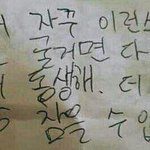 자꾸 이런
굴거면 다
동생해. 더
잡을 수 입